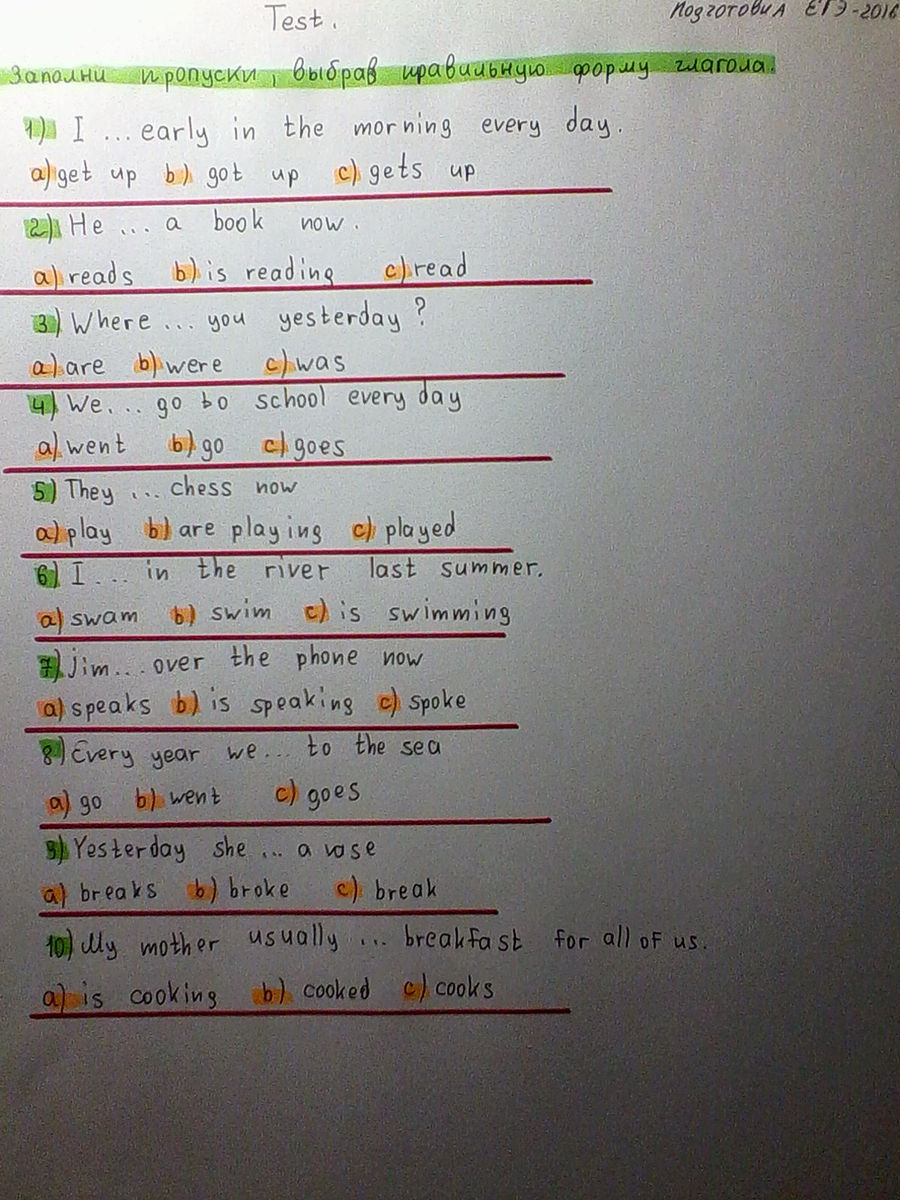 Test.
Подготовил ЕГЭ-2016
Заполни пропуски, выбрав правильную форму глагола.
1) I ... early in the morning every day.
a) get up b) got up c) gets up
2) He ... a book now.
a) reads b) is reading c) read
3) Where ... you yesterday?
a) are b) were c) was
4) We... go to school every day
a) went b) go c) goes
5) They ... chess now
a) play b) are playing c) played
6) I ... in the river last summer.
a) swam b) swim c) is swimming
7) Jim... over the phone now
a) speaks b) is speaking c) spoke
8) Every year we... to the sea
a) go b) went c) goes
9) Yesterday she ... a vase
a) breaks b) broke c) break
10) My mother usually ... breakfast for all of us.
a) is cooking b) cooked c) cooks